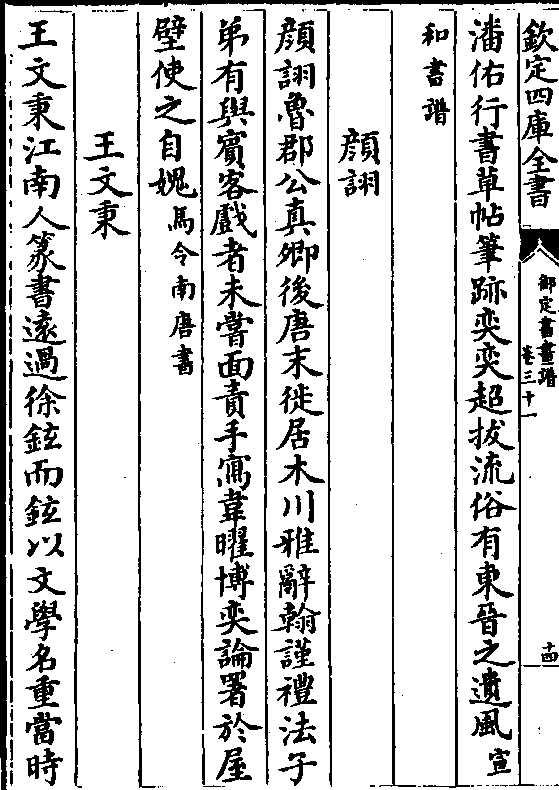 欽定四庫全書
御定書畫譜
卷三十一
十四
潘佑行書草帖筆跡奕奕超拔流俗有東晉之遺風宣
和書譜
顔詡
顔詡魯郡公真卿後唐末徙居木川雅辭翰謹禮法子
弟有與賓客戲者未嘗面責手寫韋曜博奕論署於屋
壁使之自媿馬令南唐書
王文秉
王文秉江南人篆書遠過徐鉉而鉉以文學名重當時